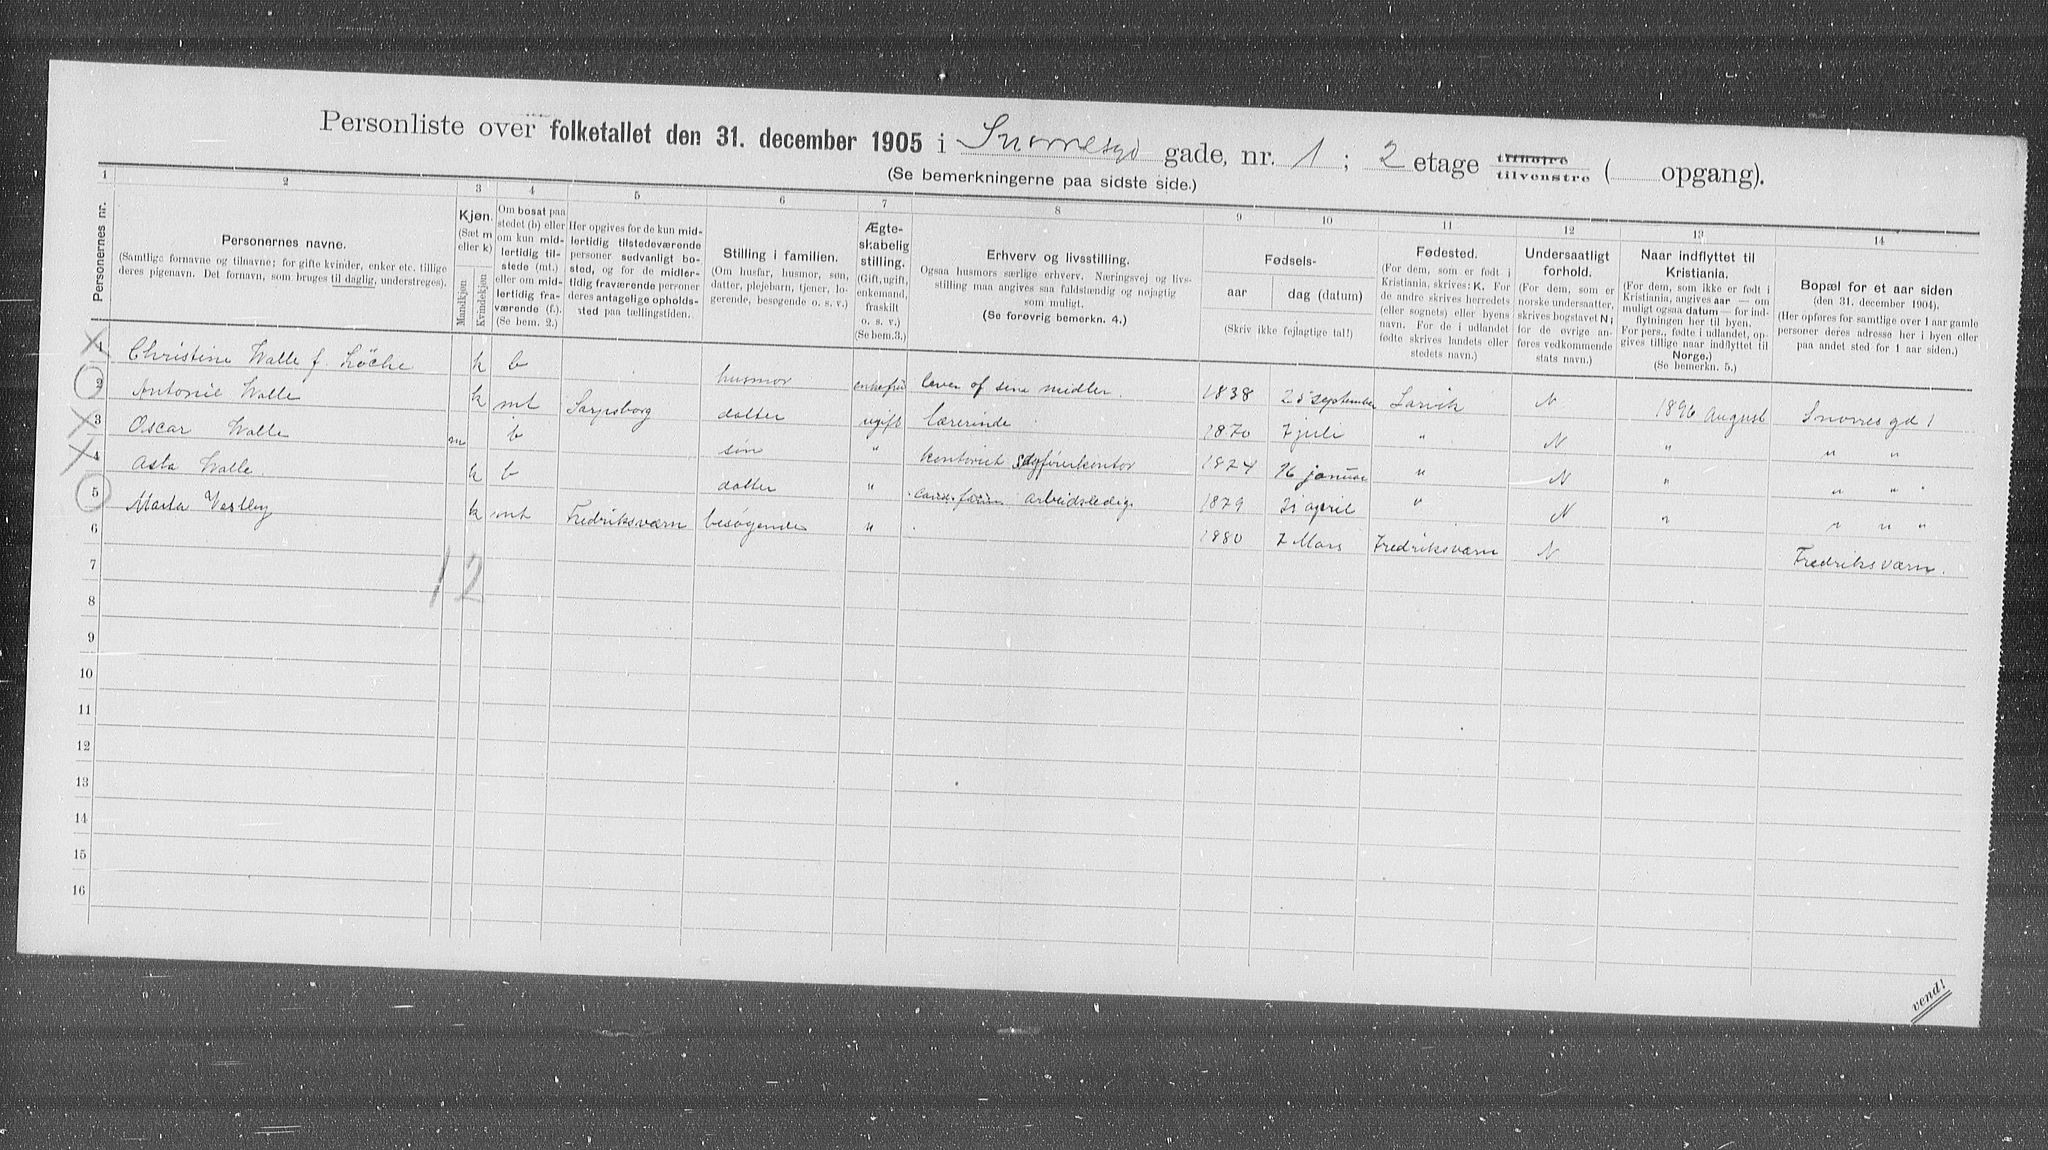 Personliste over folketallet den 31. december 1905 i Snorresgd gade, nr. 1 ; 2 etage tilhøjre tilvenstre ( opgang).
(Se bemerkningerne paa sidste side.)
1 2 3 4 5 6 7 8 9 10 11 12 13 14
Personernes nr.
Personernes navne.
(Samtlige fornavne og tilnavne; for gifte kvinder, enker etc. tillige
deres pigenavn. Det fornavn, som bruges til daglig, understreges).
Kjøn.
(Sæt m
eller k)
Mandkjøn
Kvindekjøn
Om bosat paa
stedet (b) eller
om kun mid-
lertidig til-
stede (mt.)
eller om mid-
lertidig fra-
værende (f.).
(Se bem. 2.)
Her opgives for de kun mid-
lertidig tilstedeværende
personer sedvanligt bo-
sted, og for de midler-
tidig fraværende personer
deres antagelige opholds-
sted paa tællingstiden.
Stilling i familien.
(Om husfar, husmor, søn,
datter, plejebarn, tjener, lo-
gerende, besøgende o. s. v.)
Ægte-
skabelig
stilling.
(Gift, ugift,
enkemand,
fraskilt
o. s. v.)
(Se bem.3.)
Erhverv og livsstilling.
Ogsaa husmors særlige erhverv. Næringsvej og livs-
stilling maa angives saa fuldstændig og nøjagtig
som muligt.
(Se forøvrig bemerkn. 4.)
Fødsels-
aar
dag (datum)
(Skriv ikke fejlagtige tal!)
Fødested.
(For dem, som er født i
Kristiania, skrives: K. For
de andre skrives herredets
(eller sognets) eller byens
navn. For de i udlandet
fødte skrives landets eller
stedets navn.)
Undersaatligt
forhold.
(For dem, som er
norske undersaatter,
skrives bogstavet N;
for de øvrige an-
føres vedkommende
stats navn.)
Naar indflyttet til
Kristiania.
(For dem, som ikke er født i
Kristiania, angives aar — om
muligt ogsaa datum — for ind-
flytningen her til byen.
For pers., fødte i udlandet, op-
gives tillige naar indflyttet til
Norge.)
(Se bemerkn. 5.)
Bopæl for et aar siden
(den 31. december 1904).
(Her opføres for samtlige over 1 aar gamle
personer deres adresse her i byen eller
paa andet sted for 1 aar siden.)
1 Christine Walle f. Løche k b husmor enkefru lever af sine midler. 1838 25 september Larvik N 1896 August Snorres gd 1
2 Antonie Walle k mt Sarpsborg datter ugift lærerinde 1870 7 juli " N " " "
3 Oscar Walle m b søn " kontorist 1874 16 januar " N " " " "
4 Asta Walle. k b datter " arbeidsledig 1879 21 april " N " " " "
5 Marta Vestby k mt Fredriksværn besøgende " 1880 7 Mars Fredriksværn N Fredriksværn.
6
12
7
8
9
10
11
12
13
14
15
16
vend!